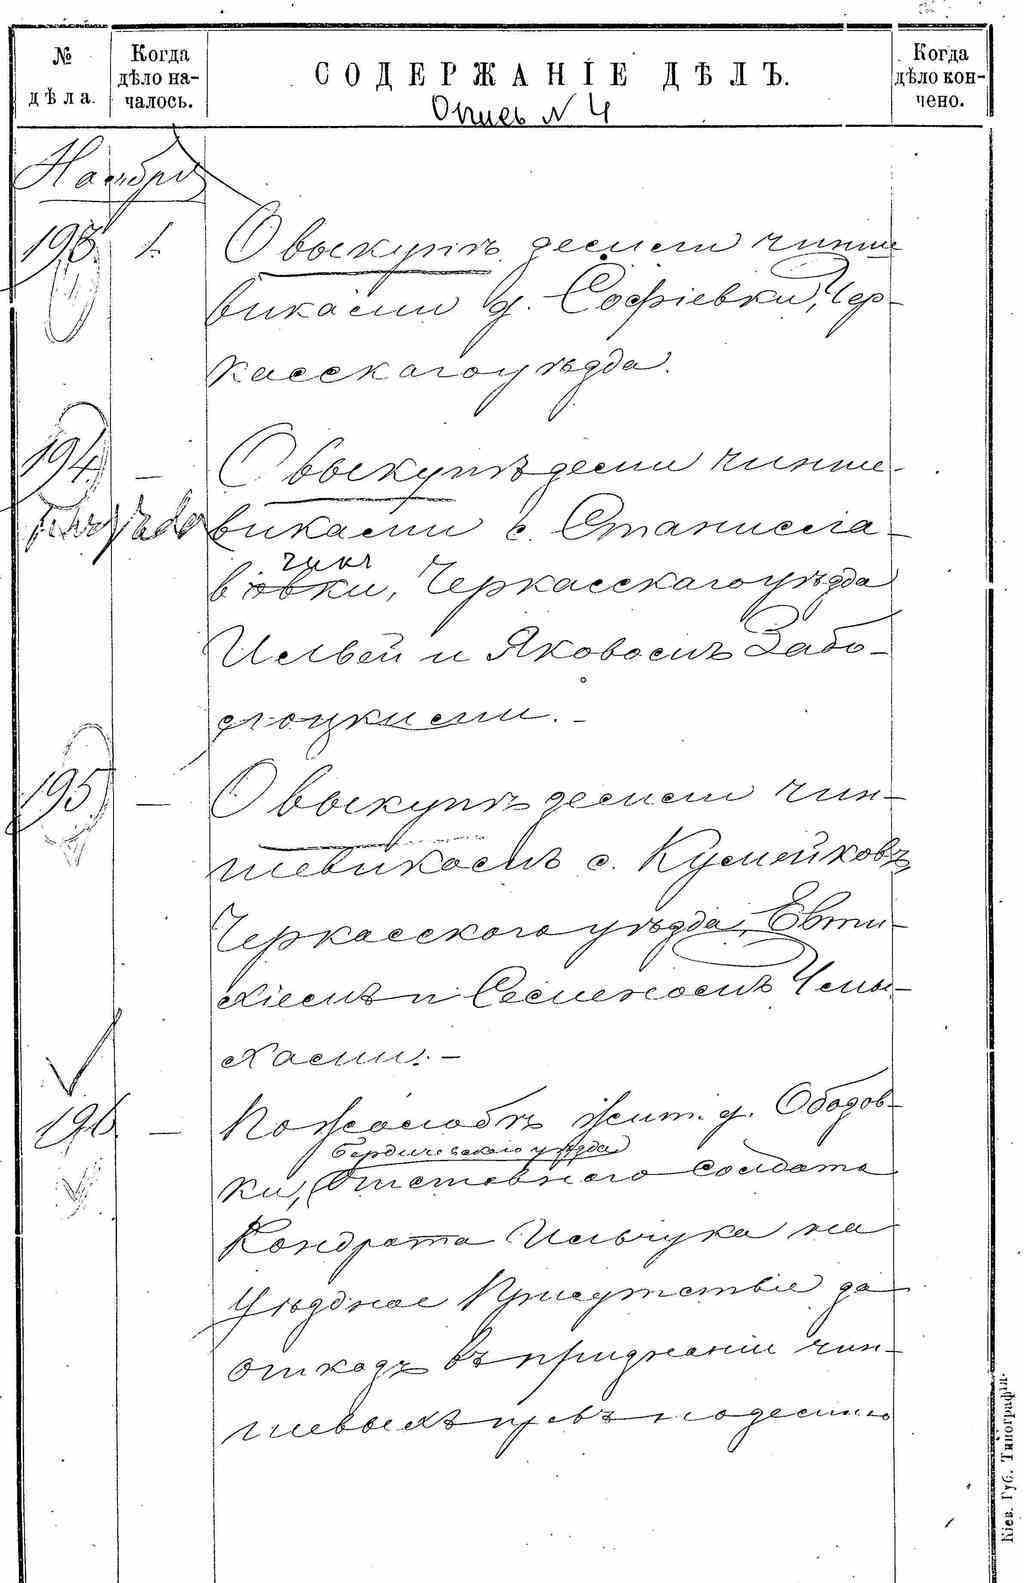 № дѣла.
Когда дѣло началось.
СОДЕРЖАНІЕ ДѢЛЪ.
Когда дѣло кончено.
Опись N 4
Ноября
193 1. О выкупѣ земли чинше
виками д. Софіевки, Чер-
касскаго уѣзда.
194 — О выкупѣ земли чинше-
виками с. Станисла-
чик
вовки, Черкасскаго уѣзда
Ильей и Яковомъ Забо-
лоцкими. -
195 — О выкупѣ земли чин-
шевикамъ с. Кумейковъ,
Черкасскаго уѣзда, Евти-
хіемъ и Семеномъ Чмы-
хами. -
196 — По жалобѣ жит. д. Ободов-
Бердичевскаго уѣзда
ки, отставного солдата
Кондрата Ильчука на
Уѣздное Присутствіе за
отказъ въ признаніи чин-
шевыхъ правъ на землю
Кіев. Губ. Типографія.